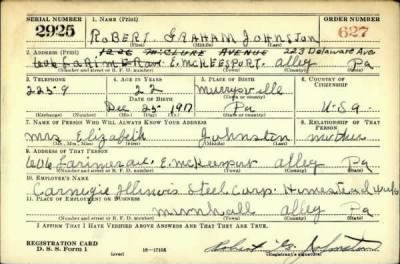 SERIAL NUMBER 1. NAME (Print) ORDER NUMBER
2925 ROBERT GRAHAM JOHNSTON 627
(First) (Middle) (Last)
1226 McCLURE AVENUE 223 Delaware Ave
2. ADDRESS (Print)
606 LARIMER Ave. E. McKEESPORT. Alleg Pa
(Number and street or R. F. D. number) (Town) (County) (State)
3. TELEPHONE 4. AGE IN YEARS 5. PLACE OF BIRTH 6. COUNTRY OF CITIZENSHIP
2259 22 Murrysville
DATE OF BIRTH (Town or county)
Dec 25 1917 Pa U.S.a
(Exchange) (No.) (Mo.) (Day) (Yr.) (State or country)
7. NAME OF PERSON WHO WILL ALWAYS KNOW YOUR ADDRESS 8. RELATIONSHIP OF THAT PERSON
Mrs Elizabeth Johnston mother
(Mr., Mrs., Miss) (First) (Middle) (Last)
9. ADDRESS OF THAT PERSON
606 Larimer ave. E. McKeesport alleg Pa
(Number and street or R. F. D. number) (Town) (County) (State)
10. EMPLOYER'S NAME
Carnegie Illinois Steel Corp. Homestead
11. PLACE OF EMPLOYMENT OR BUSINESS
Munhall alleg Pa
(Number and street or R. F. D. number) (Town) (County) (State)
I AFFIRM THAT I HAVE VERIFIED ABOVE ANSWERS AND THAT THEY ARE TRUE.
REGISTRATION CARD
D. S. S. Form 1 16—17105 Robert G. Johnston
(over) (Registrant's signature)